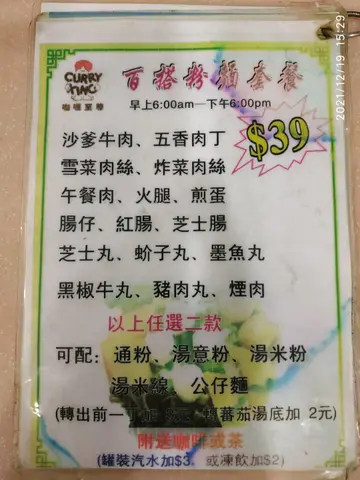 CURRY KING
咖喱至尊
百搭粉麵套餐
早上6:00am—下午6:00pm
$39
沙爹牛肉、五香肉丁
雪菜肉絲、炸菜肉絲
午餐肉、火腿、煎蛋
腸仔、紅腸、芝士腸
芝士丸、蚧子丸、墨魚丸
黑椒牛丸、豬肉丸、煙肉
以上任選二款
可配：通粉、湯意粉、湯米粉
湯米線、公仔麵
(轉出前一丁加 蕃茄湯底加 2元)
附送咖啡或茶
(罐裝汽水加$3、或凍飲加$2)
2021/12/19 15:29